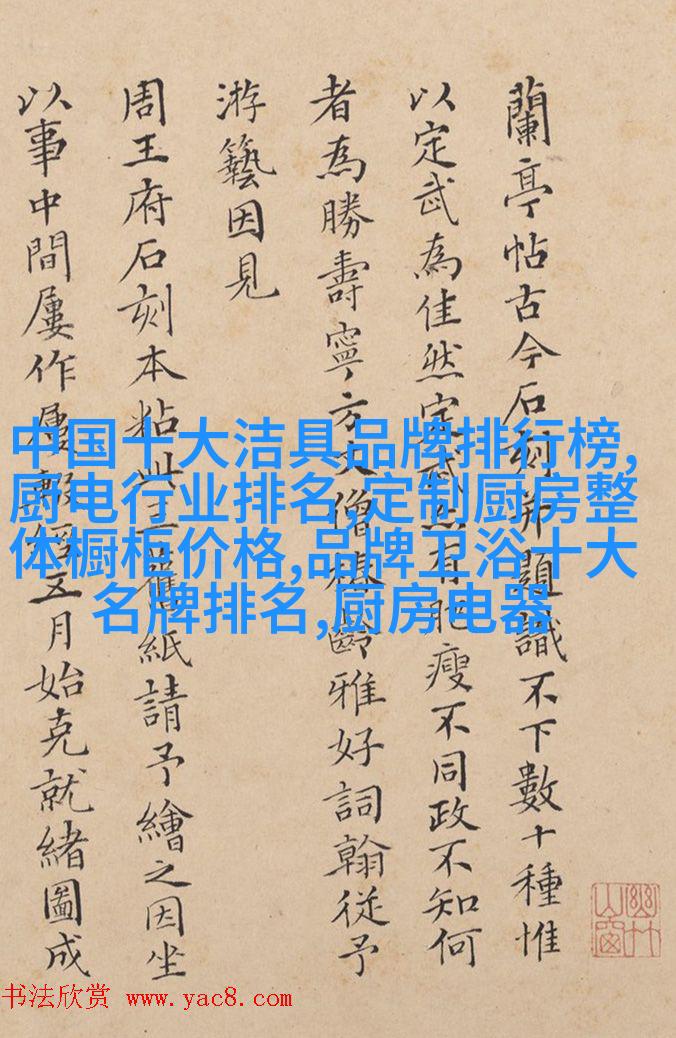 蘭亭帖古今石刻并題識不下數十種惟
以定武為佳然定武亦有肥瘦不同政不知何
者為勝壽寧方丈僧齡雅好詞翰從予
游藝因見
周王府石刻本粘此舊紙請予繪之因坐
以事中間屢作屢輟經五月始克就緒圖成
中国十大洁具品牌排行榜,
厨电行业排名,定制厨房整
体橱柜价格,品牌卫浴十大
名牌排名,厨房电器
幽竹山窗
书法欣赏 www.yac8.com